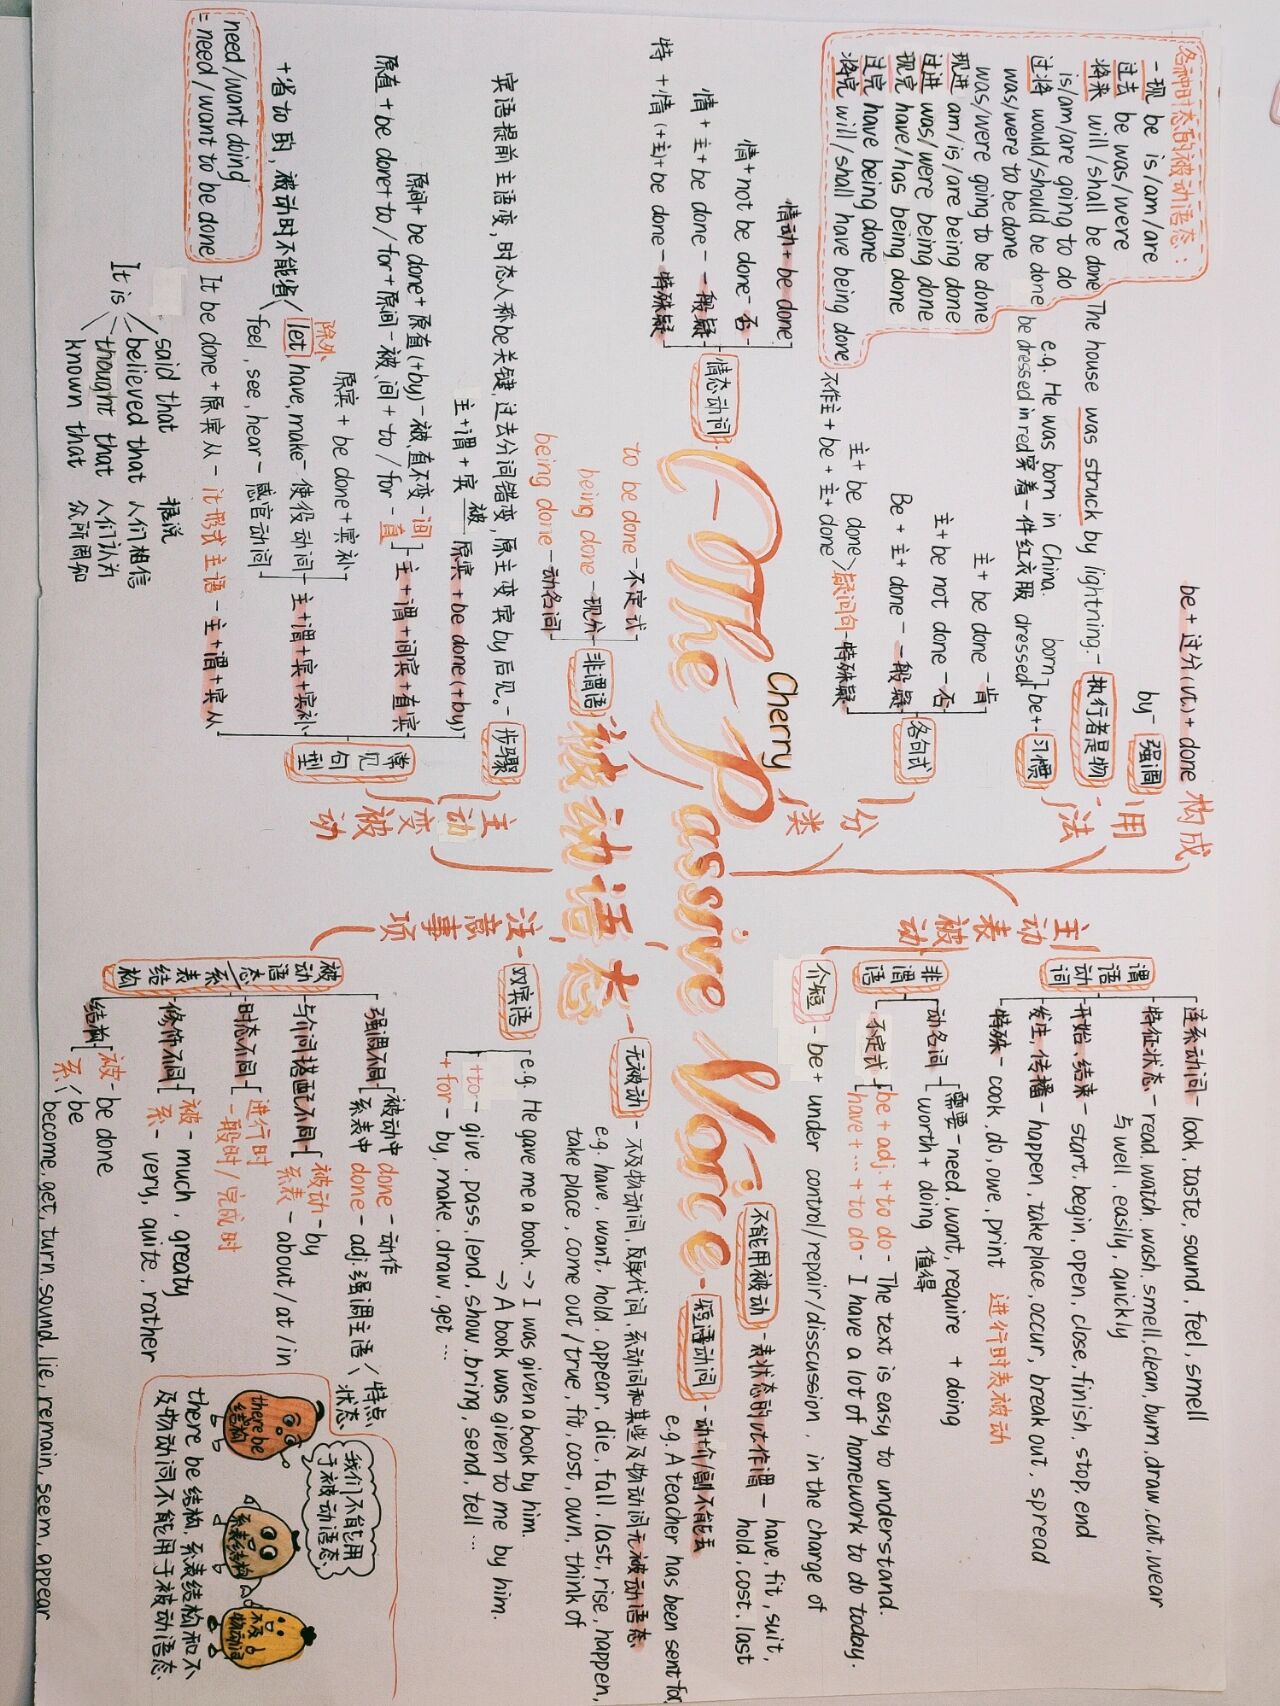 The Passive Voice
Cherry
被动语态
构成
be+过分(vt.)+done
用法
强调
by-
执行者是物
The house was struck by lightning.-
习惯
be+
born
e.g. He was born in China.
dressed
be dressed in red穿着一件红衣服
分类
各句式
主+be done-肯
主+be not done-否
Be+主+done-一般疑
疑问句-特殊疑
主+be done
不作主+be+主+done
各种时态的被动语态:
一现 be is/am/are
过去 be was/were
将来 will/shall be done
is/am/are going to do
过将 would/should be done
was/were to be done
was/were going to be done
现进 am/is/are being done
过进 was/were being done
现完 have/has being done
过完 have being done
将完 will/shall have being done
情态动词
情动+be done
情+not be done-否
情+主+be done-一般疑
特+情(+主)+be done-特殊疑
非谓语
to be done-不定式
being done-现分
being done-动名词
主动变被动
步骤
宾语提前主语变,时态人称be关键,过去分词错变,原主变宾by后见。-
常见句型
主+谓+宾 被 原宾+be done(+by)
主+谓+间宾+直宾
原间+be done+原直(+by)-被,直不变-间
原直+be done+to/for+原间-被,间+to/for-直
主+谓+宾+宾补
原宾+be done+宾补
除外
let, have, make-使役动词
feel, see, hear-感官动词
+省to的,被动时不能省
It be done+原宾从-it形式主语-主+谓+宾从
need/want doing
=need/want to be done
It is
said that 据说
believed that 人们相信
thought that 人们认为
known that 众所周知
主动表被动
谓语动词
连系动词-look, taste, sound, feel, smell
特征状态-read, watch, wash, smell, clean, burn, draw, cut, wear
与well, easily, quickly
开始、结束-start, begin, open, close, finish, stop, end
发生,传播-happen, take place, occur, break out, spread
特殊-cook, do, owe, print 进行时表被动
非谓语
动名词
需要-need, want, require+doing
worth+doing 值得
不定式
be+adj.+to do-The text is easy to understand.
have+…+to do-I have a lot of homework to do today.
介短-be+under control/repair/disscussion, in the charge of
注意事项
不能用被动-表状态的vt.作谓-have, fit, suit,
hold, cost, last
短语动词-动+介/副不能丢
e.g. A teacher has been sent for.
无被动-不及物动词,
系动词和某些及物动词无被动语态
e.g. have, want, hold, appear, die, fall, last, rise, happen,
take place, come out/true, fit, cost, own, think of
双宾语
e.g. He gave me a book.→I was given a book by him.
→A book was given to me by him.
+to-give, pass, lend, show, bring, send, tell…
+for-by, make, draw, get…
被动语态/系表结构
强调不同
被动中done-动作
系表中done-adj.强调主语
特点
状态
与介词搭配不同
被动-by
系表-about/at/in
时态不同
进行时
一般时/完成时
修饰不同
被-much, greaty
系-very, quite, rather
结构
被-be done
系
be
become, get, turn, sound, lie, remain, seem, appear
there be结构
系表结构
不及物动词
我们不能用
于被动语态
there be结构,系表结构和不
及物动词不能用于被动语态